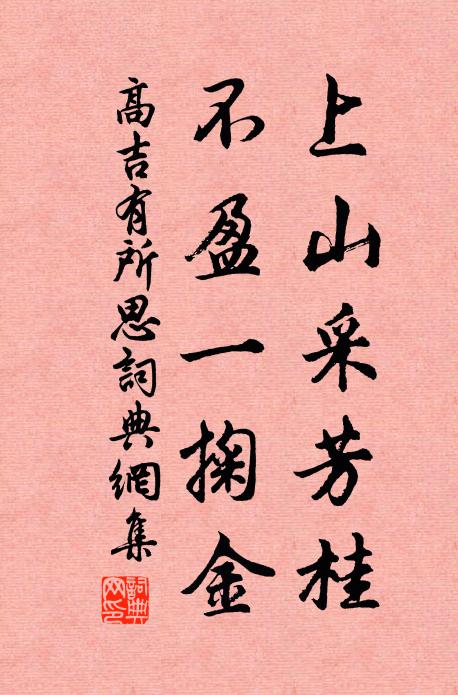 上山采芳桂
不盈一掬金
高吉有所思詞典網集
詞典網印